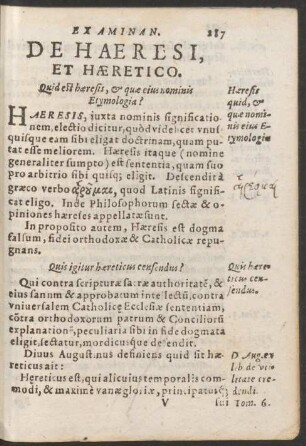 EXAMINAN. 187
DE HAERESI,
ET HÆRETICO.
Quid est hæresis, & quæ eius nominis
Etymologia?
Hæresis
quid, &
quæ nomi-
nis eius E-
tymologia
HAERESIS, iuxta nominis significatio-
nem, electio dicitur, quòd videlicet vnus-
quisque eam sibi eligat doctrinam, quam pu-
tat esse meliorem. Hæresis itaque (nomine
generaliter sumpto) est sententia, quam suo
pro arbitrio sibi quisq; eligit. Descendit à
græco verbo αἱροῦμαι, quod Latinis signifi-
cat eligo. Inde Philosophorum sectæ & o-
piniones hæreses appellatæ sunt.
In proposito autem, Hæresis est dogma
falsum, fidei orthodoxæ & Catholicæ repu-
gnans.
Quis igitur hæreticus censendus?
Quis hære
ticus cen-
sendus.
Qui contra scripturæ sacræ authoritatē, &
eius sanum & approbatum intellectū, contra
vniuersalem Catholicæ Ecclesiæ sententiam,
cōtra orthodoxorum patrum & Conciliorū
explanationē, peculiaria sibi in fide dogmata
eligit, sectatur, mordicusque defendit.
Diuus Augustinus definiens quid sit hæ-
reticus ait:
D. Augus.
lib. de vti-
litate cre-
dendi.
Hæreticus est, qui alicuius temporalis com-
modi, & maximè vanæ gloriæ, principa-
V
Tom. 6.